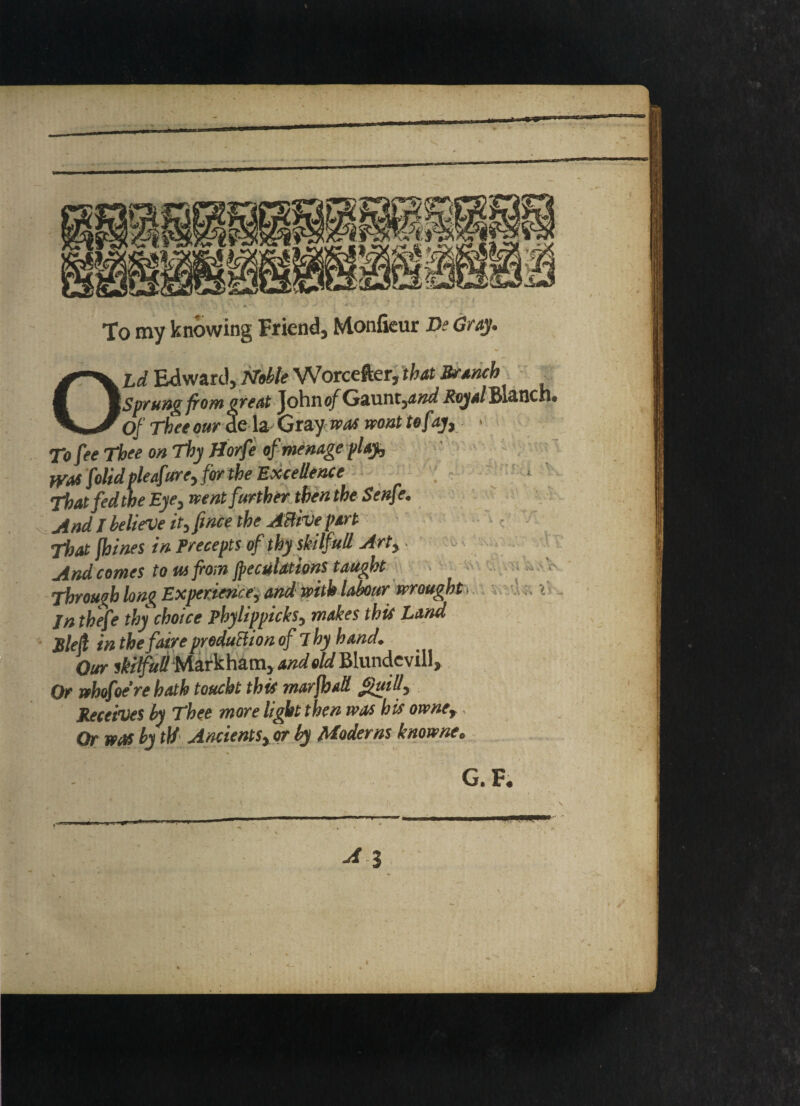 To my knowing Friend, Monſieur De Gray.
OLd Edward, Noble Worceſter, that Branch
Sprung from great John of Gaunt, and Royal Blanch.
Of Thee our de la Gray was wont to ſay,
To ſee Thee on Thy Horſe of menage play,
Was ſolid pleaſure, for the Excellence
That fed the Eye, went further then the Senſe.
And I believe it, ſince the Active part
That ſhines in Precepts of thy skilfull Art,
And comes to us from ſpeculations taught
Through long Experience, and with labour wrought
In theſe thy choice Phylippicks, makes this Land
Bleſt in the faire production of Thy hand.
Our skilfull Markham, and old Blundevill,
Or whoſoe're hath toucht this marſhall Quill,
Receives by Thee more light then was his owne,
Or was by th' Ancients, or by Moderns knowne.
G. F.
A 3